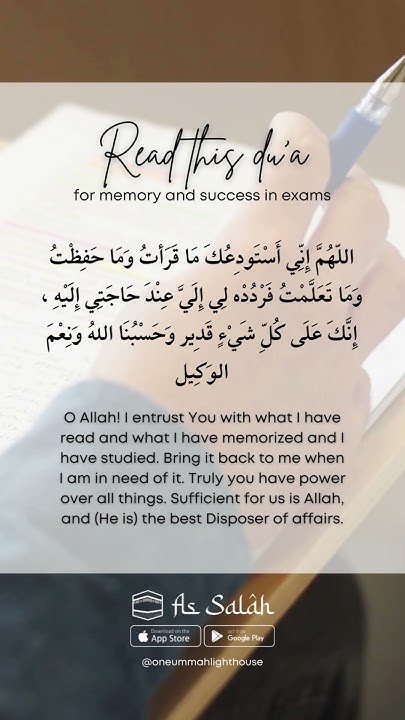 Read this du'a
for memory and success in exams
اللّهُمَّ إِنِّي أَسْتَودِعُكَ مَا قَرَأتُ وَمَا حَفِظْتُ
وَمَا تَعَلَّمْتُ فَرْدُدْه لِي إِلَيَّ عِنْدَ حَاجَتِي إِلَيْهِ ،
إِنَّكَ عَلَى كُلِّ شَيْءٍ قَدِير وَحَسْبُنَا اللهُ وَنِعْمَ
الوَكِيل
O Allah! I entrust You with what I have
read and what I have memorized and I
have studied. Bring it back to me when
I am in need of it. Truly you have power
over all things. Sufficient for us is Allah,
and (He is) the best Disposer of affairs.
As Salâh
Download on the
App Store
GET IT ON
Google Play
@oneummahlighthouse